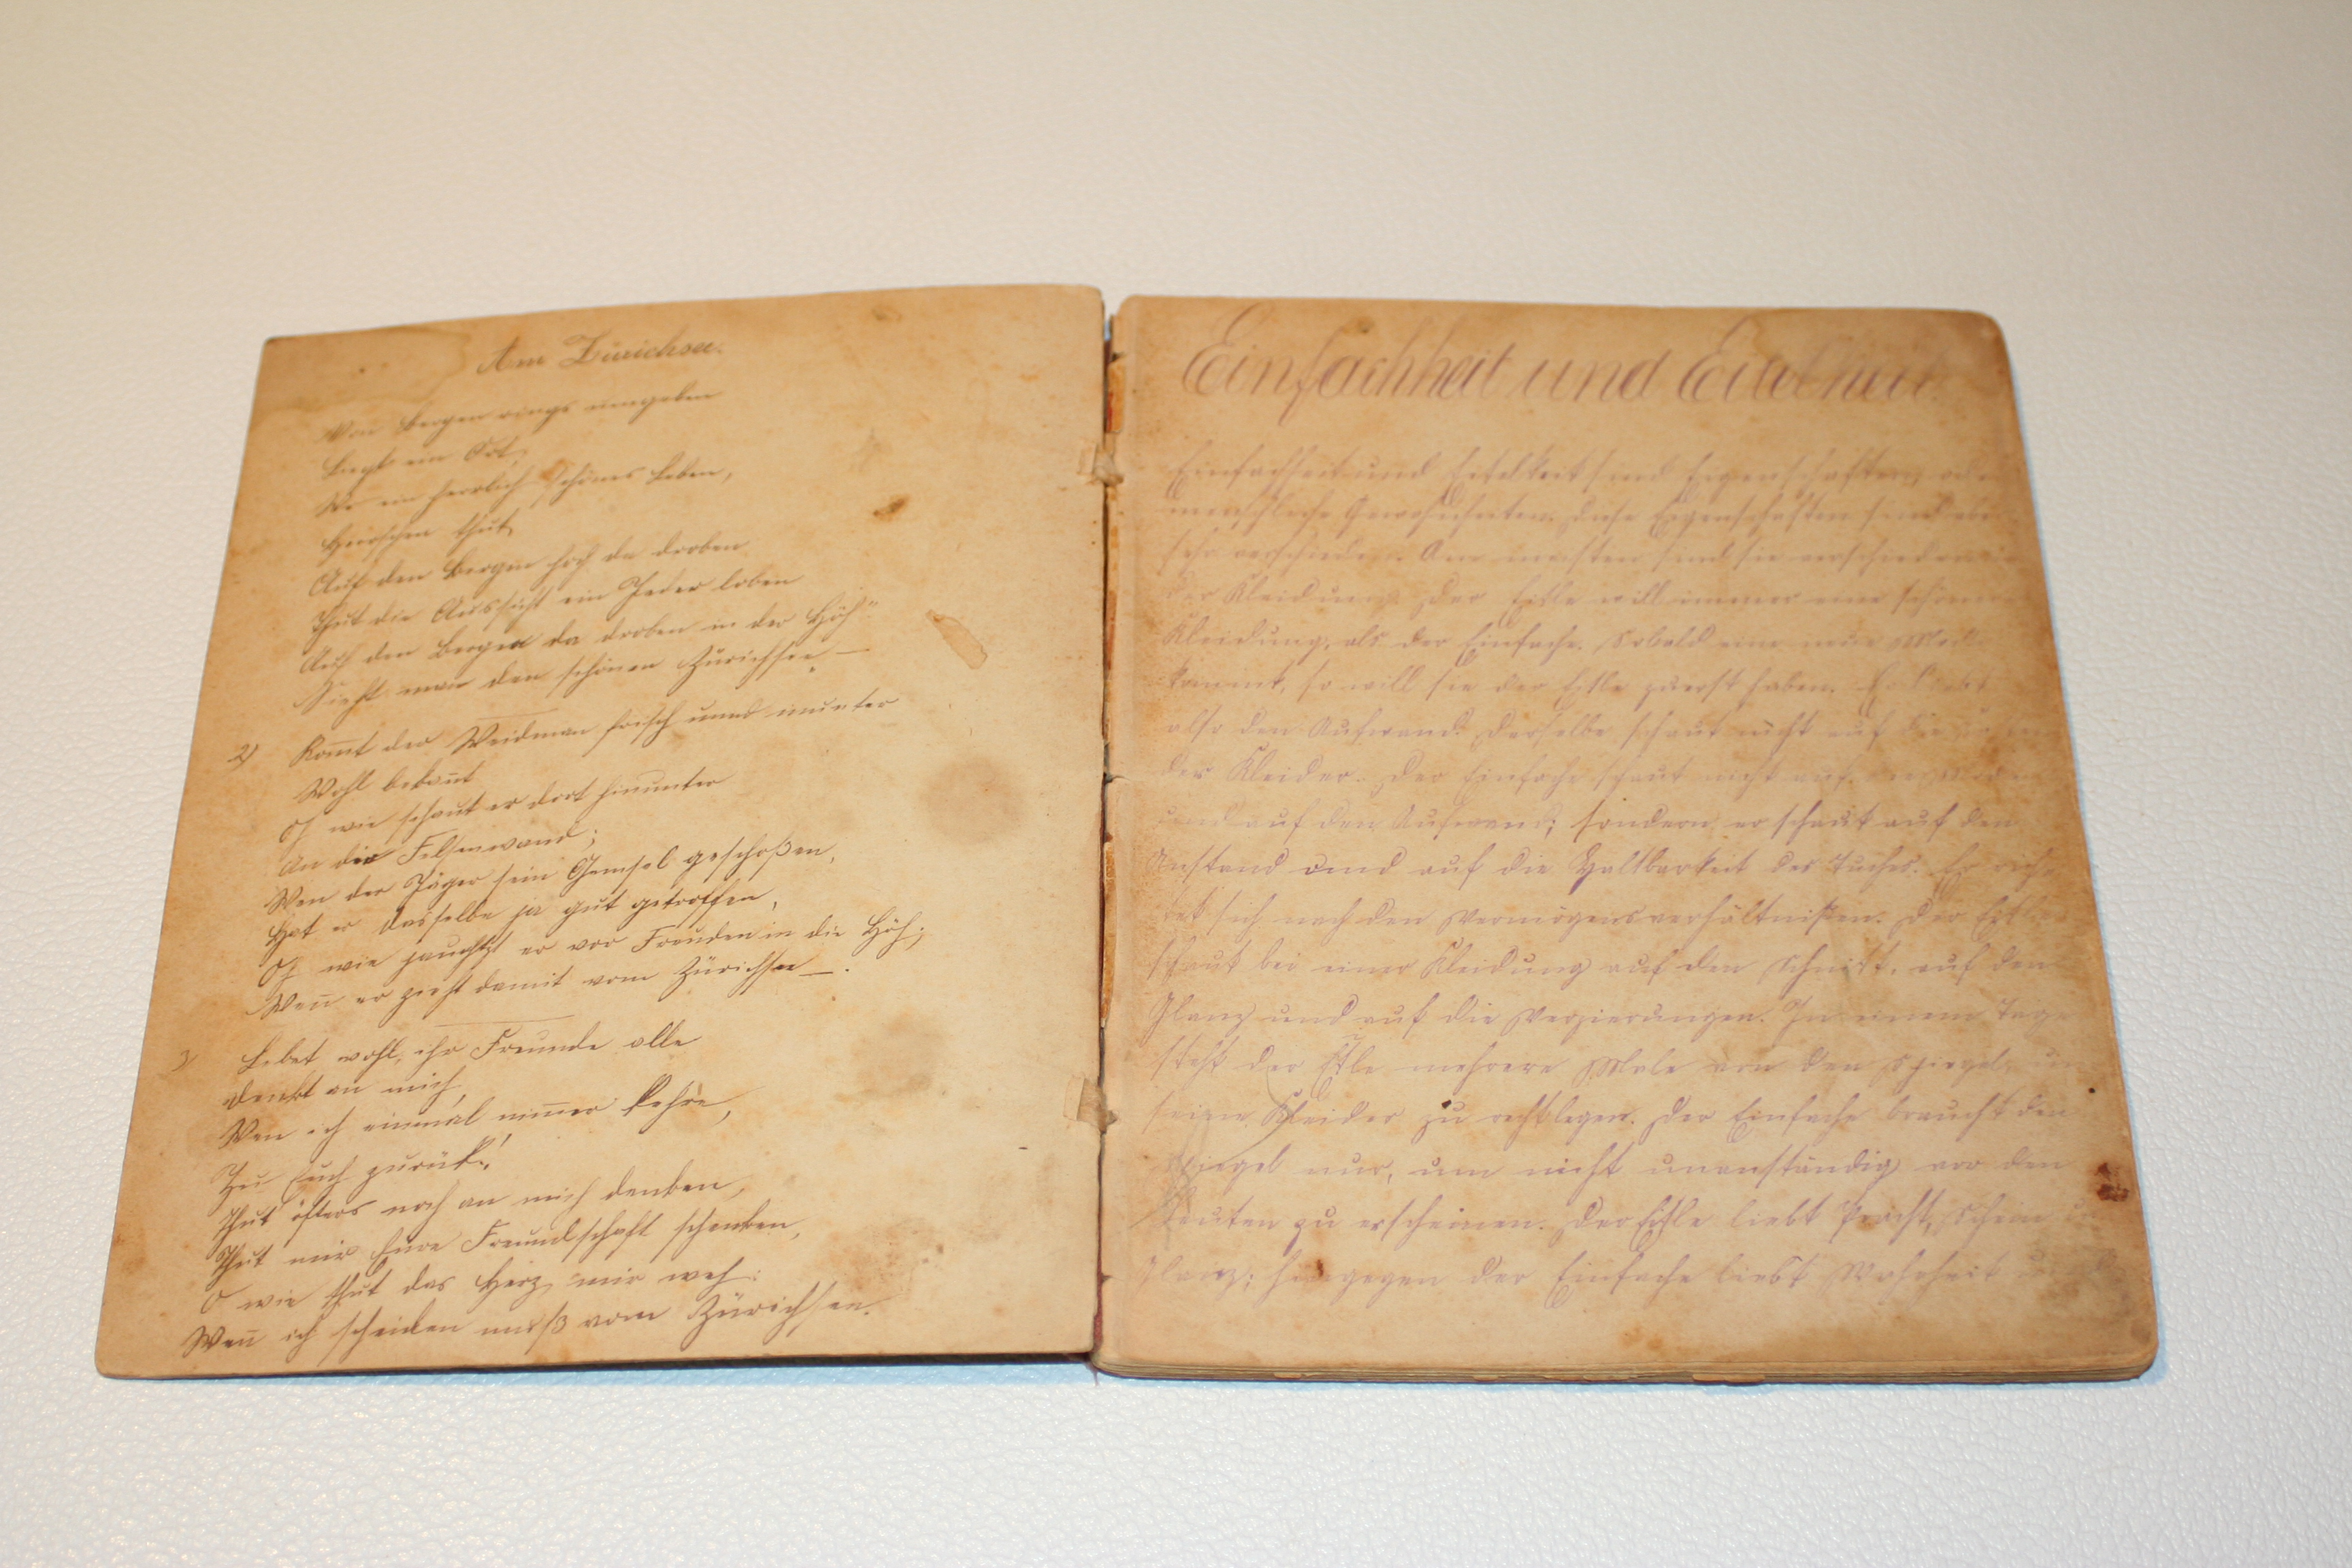 Am Zürichsee.
Von Bergen rings umgeben
Liegt ein Ort,
Wo ein herrlich schönes Leben,
Herrschen thut,
Auf den Bergen hoch da droben
Thut die Aussicht ein Jeder loben
Auf den Bergen da droben in der Höh"
Sieht man den schönen Zürichsee –
2) Kom̅t der Weidman frisch und munter
Wohl bekan̅t
Oh wie schaut er dort hinunter
An die Felsenwand;
Wen der Jäger sein Gemsel geschoßen,
Hat er dasselbe ja gut getroffen,
Oh wie jauchtzt er vor Freuden in die Höh;
Wen̅ er zieht damit vom Zürichsee –.
3 Lebet wohl, ihr Freunde alle
denkt an mich,
Wen ich einmal nim̅er kehre,
Zu Euch zurück!
Thut öfters noch an mich denken,
Thut mir Eure Freundschaft schenken,
O wie thut das Herz mir weh:
Wen̅ ich scheiden muß vom Zürichsee.
Einfachheit und Eitelkeit
Einfachheit und Eitelkeit sind Eigenschaften, oder
menschliche Gewohnheiten. Diese Eigenschaften sind aber
sehr verschieden. Am meisten sind sie verschieden in
der Kleidung. Der Eitle will immer eine schönere
Kleidung, als der Einfache. Sobald eine neue Mode
kommt, so will sie der Eitle zuerst haben. Er liebt
also den Aufwand. Derselbe schaut nicht auf die
der Kleider. Der Einfache schaut nicht auf
und auf den Aufwand; sondern er schaut auf den
Anstand und auf die Haltbarkeit des Tuches. Er rich-
tet sich nach den Vermögensverhältnißen. Der Eitle
schaut bei einer Kleidung auf den Schnitt, auf den
Glanz und auf die Verzierungen. In einem Tage
steht der Eitle mehrere Male vor den Spiegel, um
seine Kleider zu recht legen. Der Einfache braucht den
Spiegel nur, um nicht unanständig vor den
Leuten zu erscheinen. Der Eitle liebt Pracht, Schein und
Glanz; hingegen der Einfache liebt Wahrheit